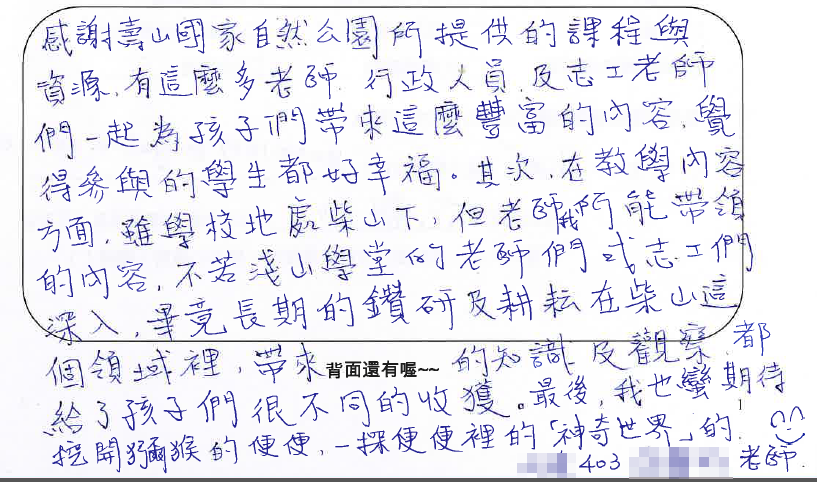 感謝壽山國家自然公園所提供的課程與
資源,有這麼多老師、行政人員、及志工老師
們一起為孩子們帶來這麼豐富的內容,覺
得參與的學生都好幸福。其次,在教學內容
方面,雖學校地處柴山下,但老師我所能帶領
的內容,不若淺山學堂的老師們或志工們
深入,畢竟長期的鑽研及耕耘在柴山這
個領域裡,帶來 背面還有喔~~ 的知識及觀察,都
給了孩子們很不同的收獲。最後,我也蠻期待
挖開獼猴的便便,一探便便裡的「神奇世界」的
403 老師.